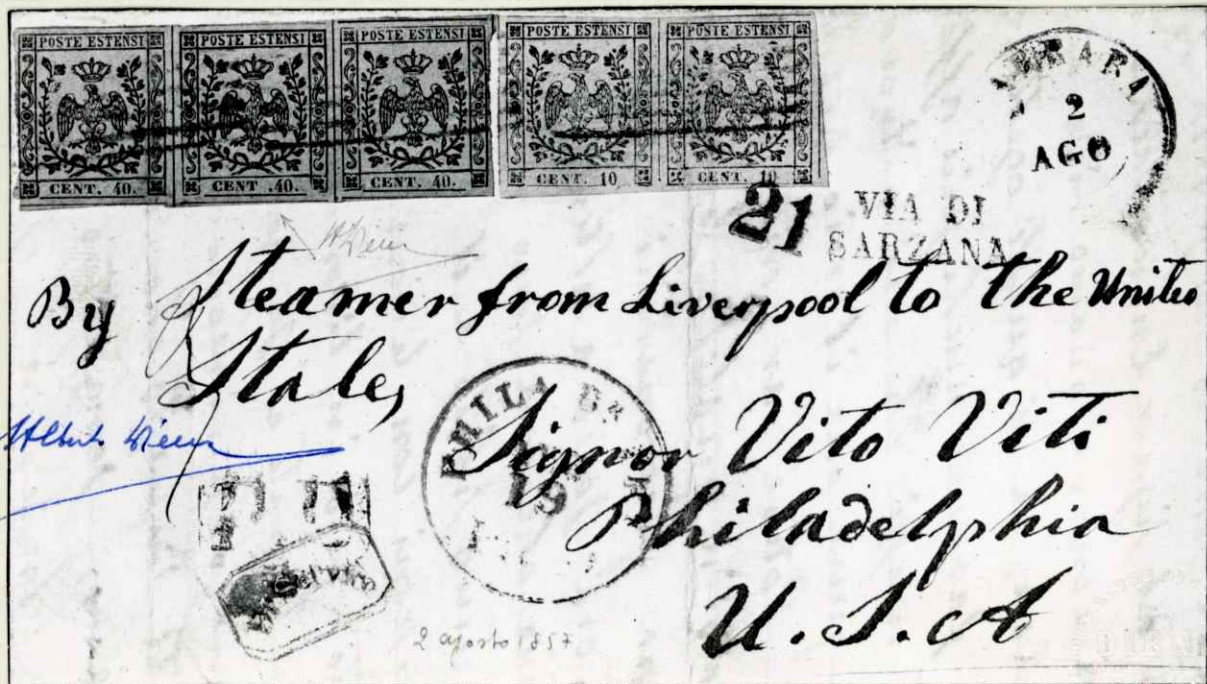 POSTE ESTENSI POSTE ESTENSI POSTE ESTENSI POSTE ESTENSI POSTE ESTENSI
CENT. 40. CENT. 40. CENT. 40. CENT. 10 CENT. 10
2
AGO
21
VIA DI
SARZANA
By Steamer from Liverpool to the United
States
PHILA
18
Signor Vito Viti
Philadelphia
U.S.A
2 agosto 1857